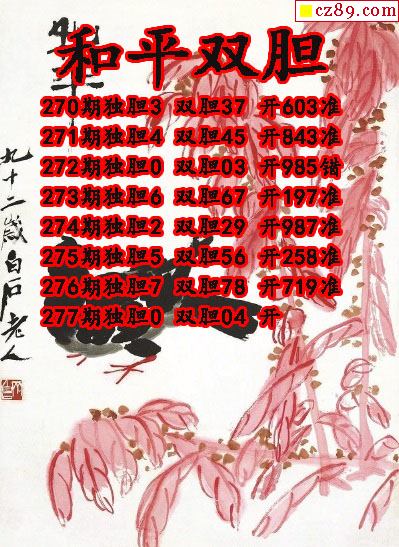 cz89.com
和平双胆
270期独胆3 双胆37 开603准
271期独胆4 双胆45 开843准
272期独胆0 双胆03 开985错
273期独胆6 双胆67 开197准
274期独胆2 双胆29 开987准
275期独胆5 双胆56 开258准
276期独胆7 双胆78 开719准
277期独胆0 双胆04 开
九十二岁白石老人